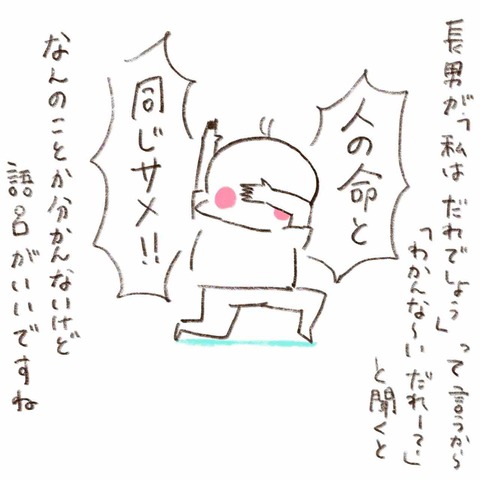 長男が、「私は だれでしょう」って言うから
「わかんな〜い だれー?」
と聞くと
人の命と
同じサメ!!
なんのことか分かんないけど
語呂がいいですね